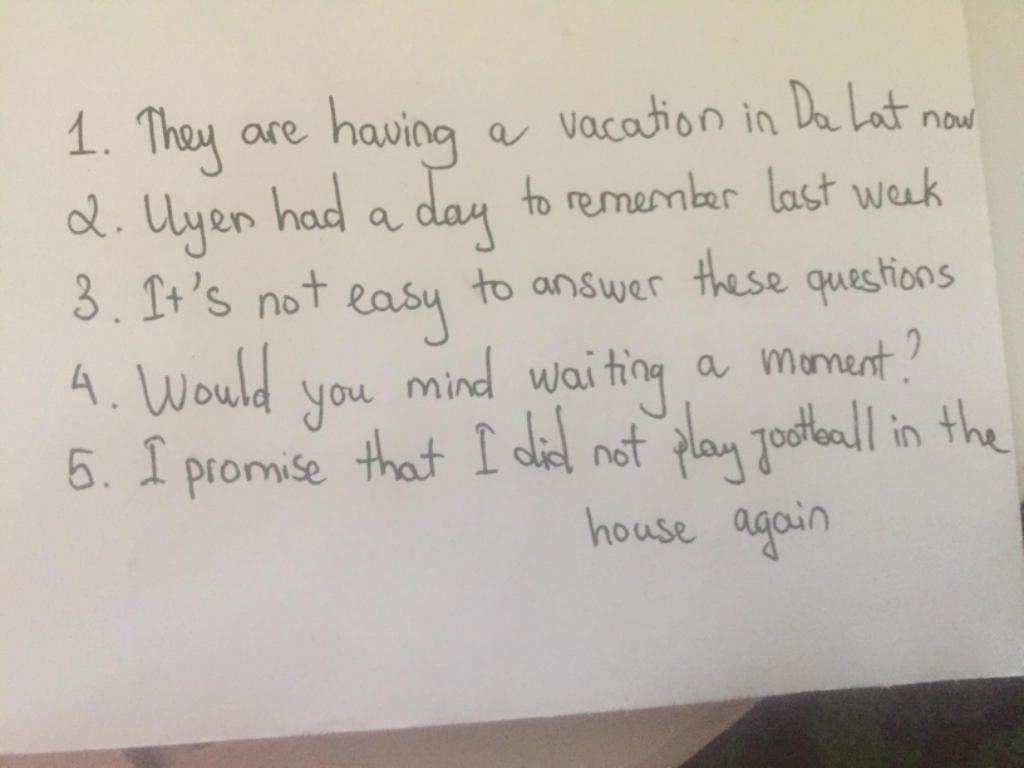 1. They are having a vacation in Da Lat now
2. Uyen had a day to remember last week
3. It's not easy to answer these questions
4. Would you mind waiting a moment?
5. I promise that I did not play football in the
house again